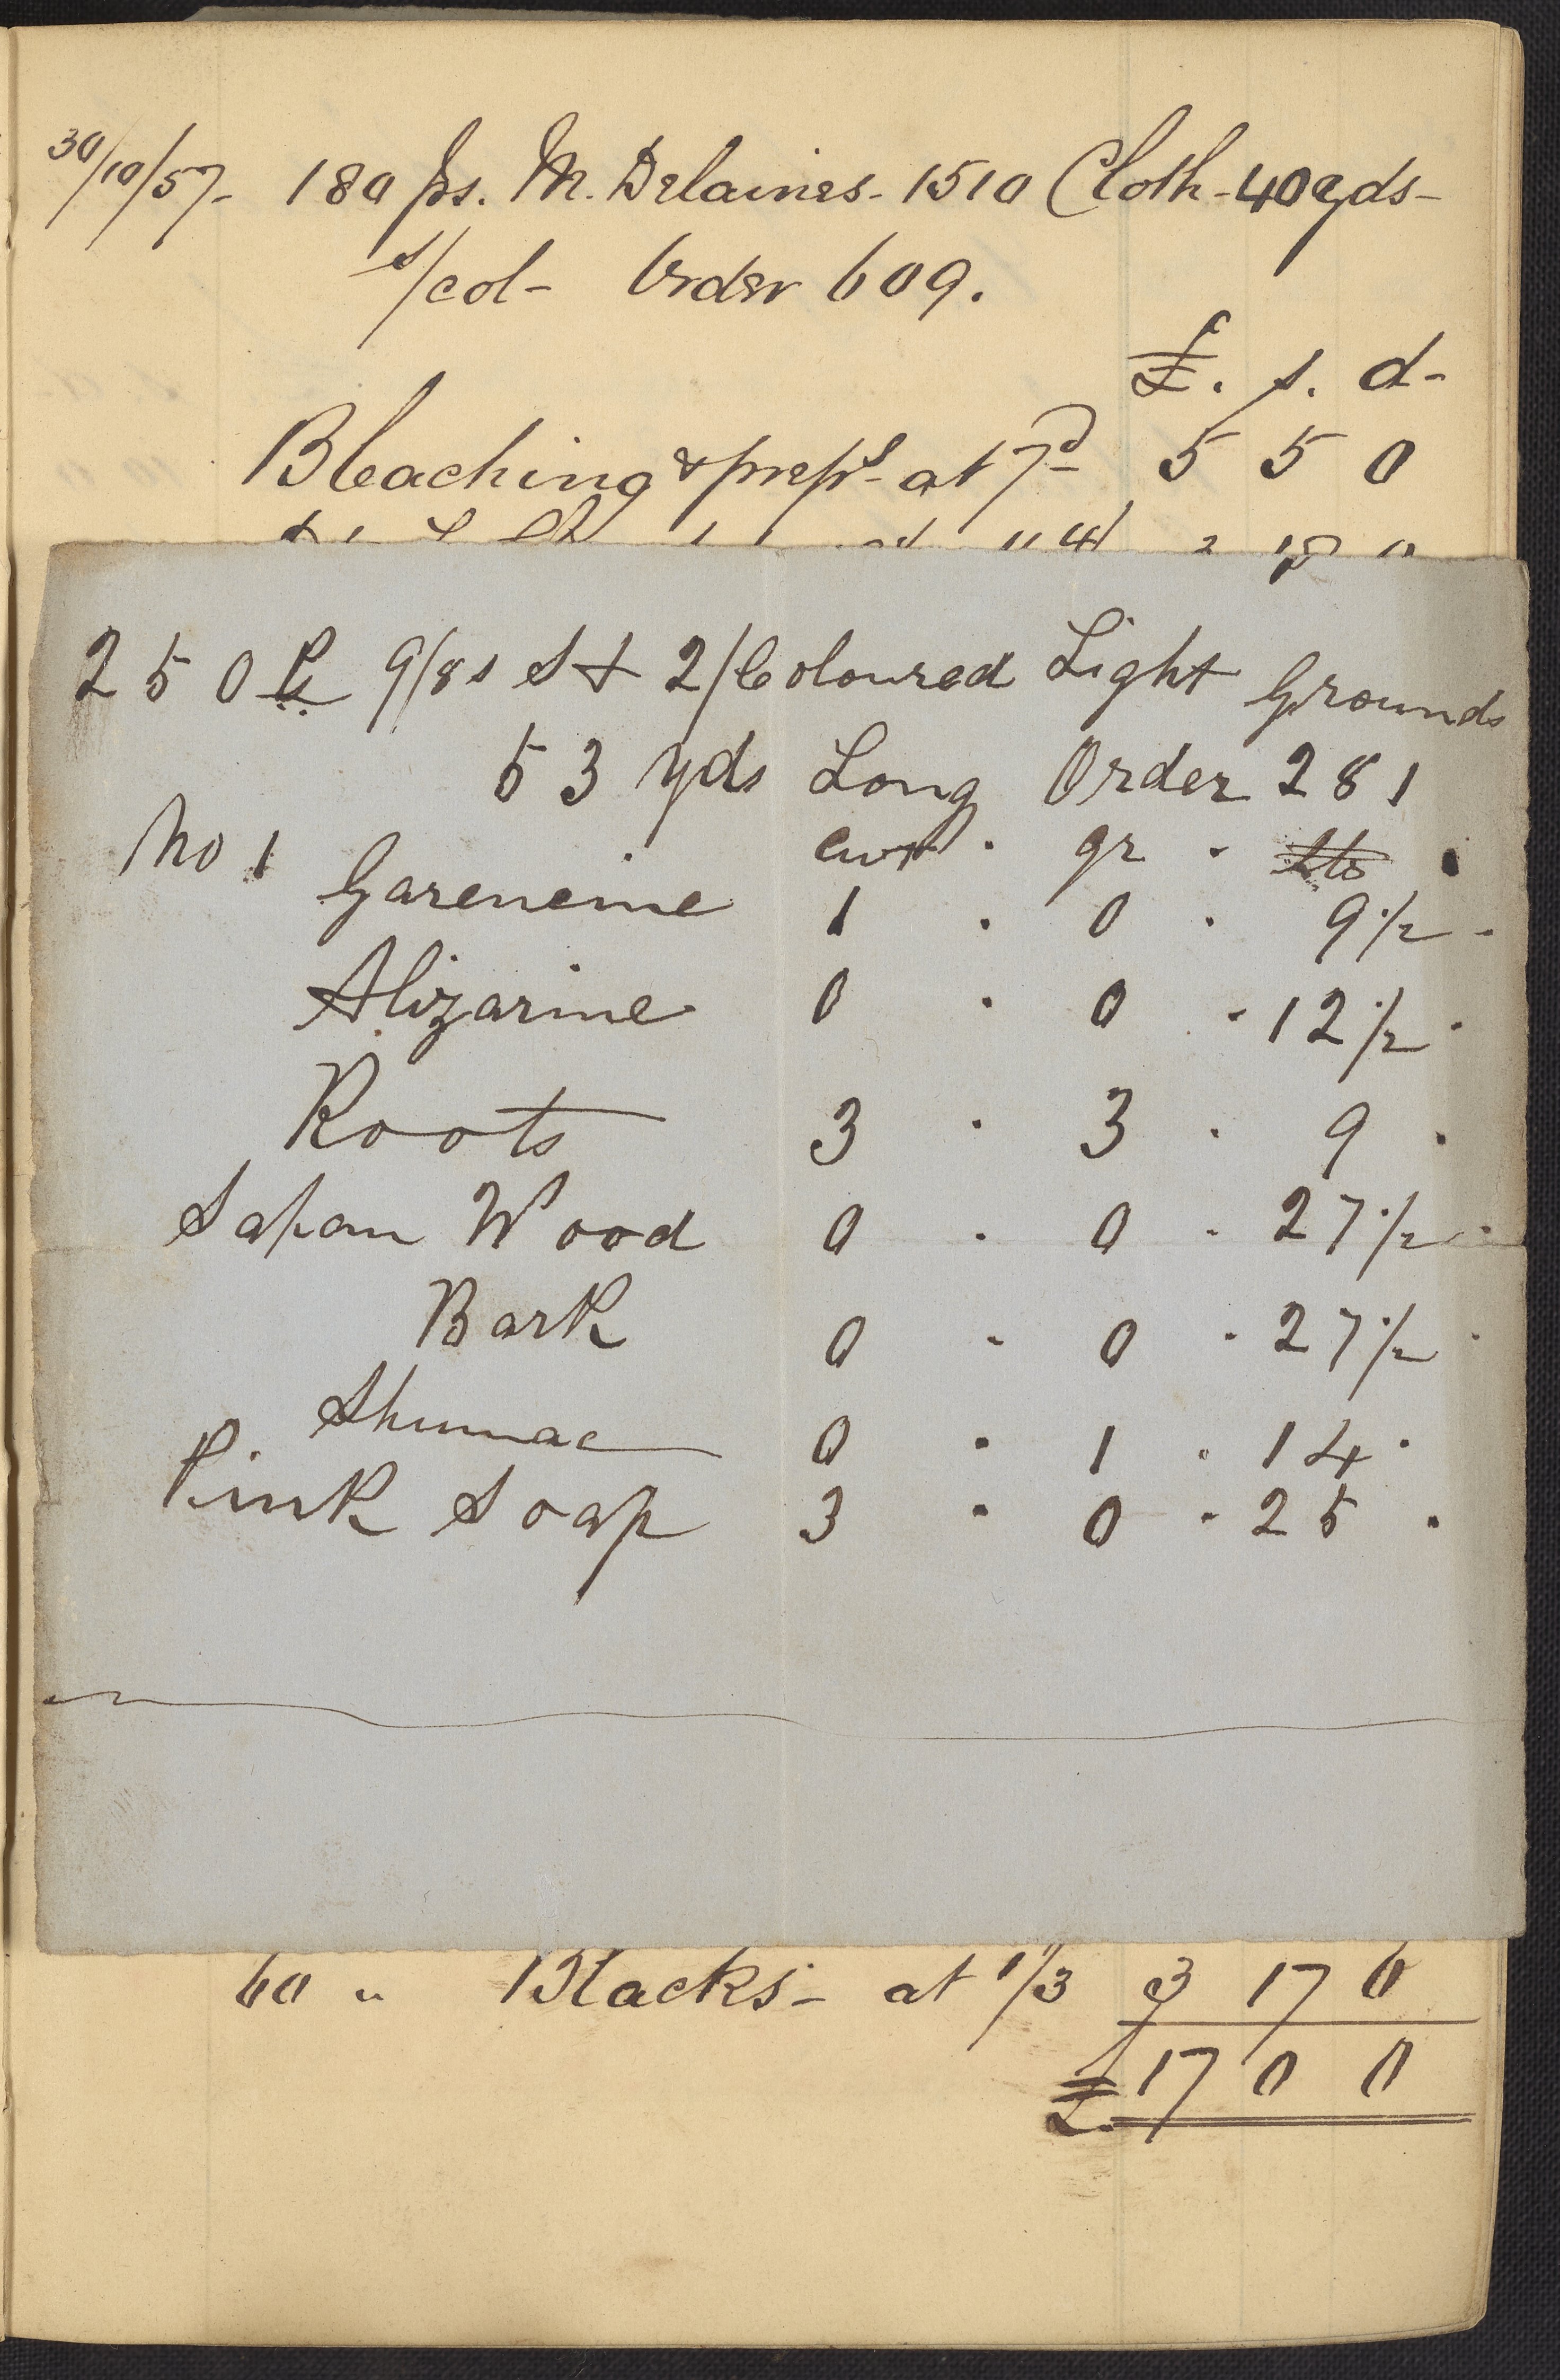 30/10/57- 180 ps. M. Delaines- 1510 Cloth- 40 yds-
s/col- Order 609.
£. s. d-
Bleaching & prepg- at 7d 5 5 0
250 Ps 9/8s St 2/Coloured Light Grounds
53 yds Long Order 281
No 1 cwt . qr . lbs .
Garencine 1 . 0 . 9 1/2 .
Alizarine 0 . 0 . 12 1/2 .
Roots 3 . 3 . 9 .
Sapan Wood 0 . 0 . 27 1/2 .
Bark 0 . 0 . 27 1/2 .
Shumac 0 . 1 . 14 .
Pink Soap 3 . 0 . 25 .
60 " Blacks- at 1/3 3 17 6
£17 0 0